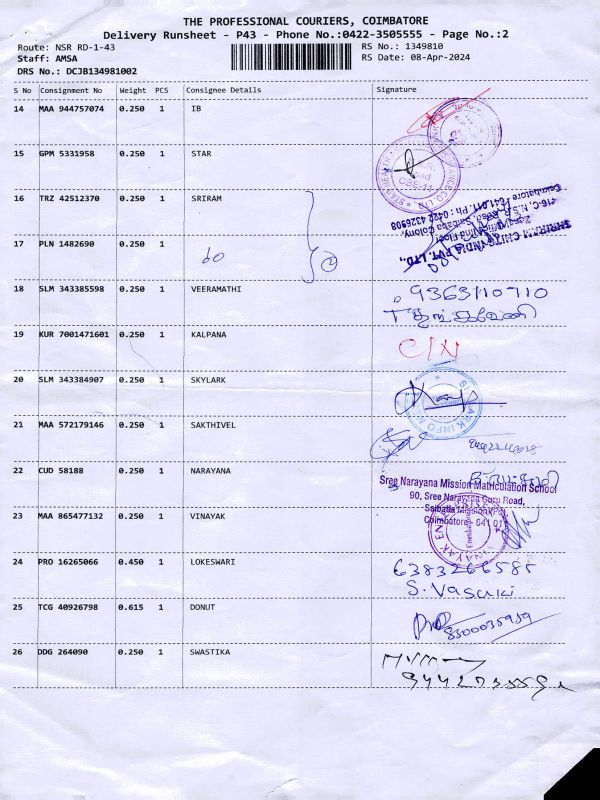 THE PROFESSIONAL COURIERS, COIMBATORE
Delivery Runsheet - P43 - Phone No.:0422-3505555 - Page No.:2
Route: NSR RD-1-43 RS No.: 1349810
Staff: AMSA RS Date: 08-Apr-2024
DRS No.: DCJB134981002
S No Consignment No Weight PCS Consignee Details Signature
14 MAA 944757074 0.250 1 IB
15 GPM 5331958 0.250 1 STAR
16 TRZ 42512370 0.250 1 SRIRAM
17 PLN 1482690 0.250 1
do
2
SHRIRAM CHITS INDIA PVT. LTD.,
Saibaba Colony,
Coimbatore - 641 011. Ph : 0422 4326908
18 SLM 343385598 0.250 1 VEERAMATHI 9363110710
19 KUR 7001471601 0.250 1 KALPANA C/N
20 SLM 343384907 0.250 1 SKYLARK
21 MAA 572179146 0.250 1 SAKTHIVEL
22 CUD 58188 0.250 1 NARAYANA
Sree Narayana Mission Matriculation School
90, Sree Narayana Guru Road,
Saibaba Mission (Po),
Coimbatore - 641 011
23 MAA 865477132 0.250 1 VINAYAK
24 PRO 16265066 0.450 1 LOKESWARI 6383266585
S. Vasuki
25 TCG 40926798 0.615 1 DONUT
26 DDG 264090 0.250 1 SWASTIKA